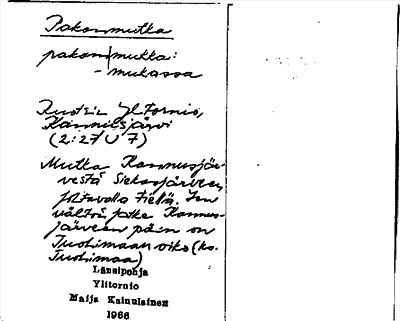 Pakonmutka
pakon|mutka:
- mukassa
Ruotsin Ylitornio,
Kannusjärvi
(2:27 U 7)
Mutka Kannusjär-
vestä Siekasjärveen
johtavalla tiellä. Sen
jatke Kannus-
järveen päin on
Tuohimaan oiko (ks.
Tuohimaa)
Länsipohja
Ylitornio
Maija Kainulainen
1966